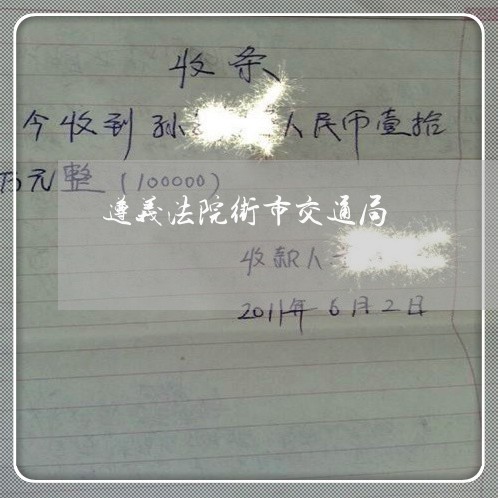 收条
今收到孙 人民币壹拾
万元整(100000)
遵義法院街市交通局
收款人
2011年6月2日